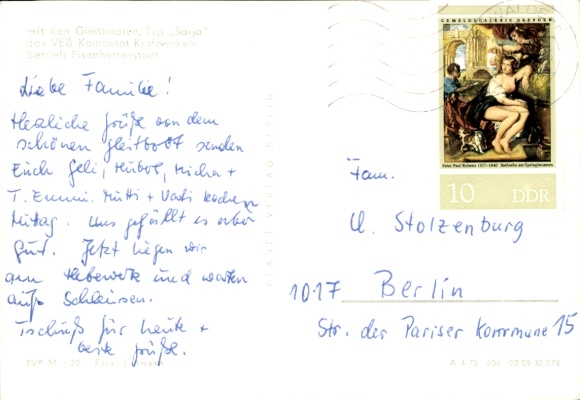 mit den Gleitbooten, Typ „Sarja"
des VEB Kombinat Kraftverkehr
Betrieb Eisenhüttenstadt
Liebe Familie!
Herzliche Grüße von dem
schönen Gleitboot senden
Euch Geli, Micha +
T. Emmi. Mutti + Vati kochen
Mittag. Uns gefällt es sehr
gut. Jetzt liegen wir
am Hebewerk und warten
aufs Schleusen.
Tschüß für heute +
beste Grüße.
PLANET VERLAG BERLIN
GEMÄLDEGALERIE DRESDEN
Peter Paul Rubens 1577-1640 Bathseba am Springbrunnen
10 DDR
Fam.
U. Stolzenburg
1017 Berlin
Str. der Pariser Kommune 15